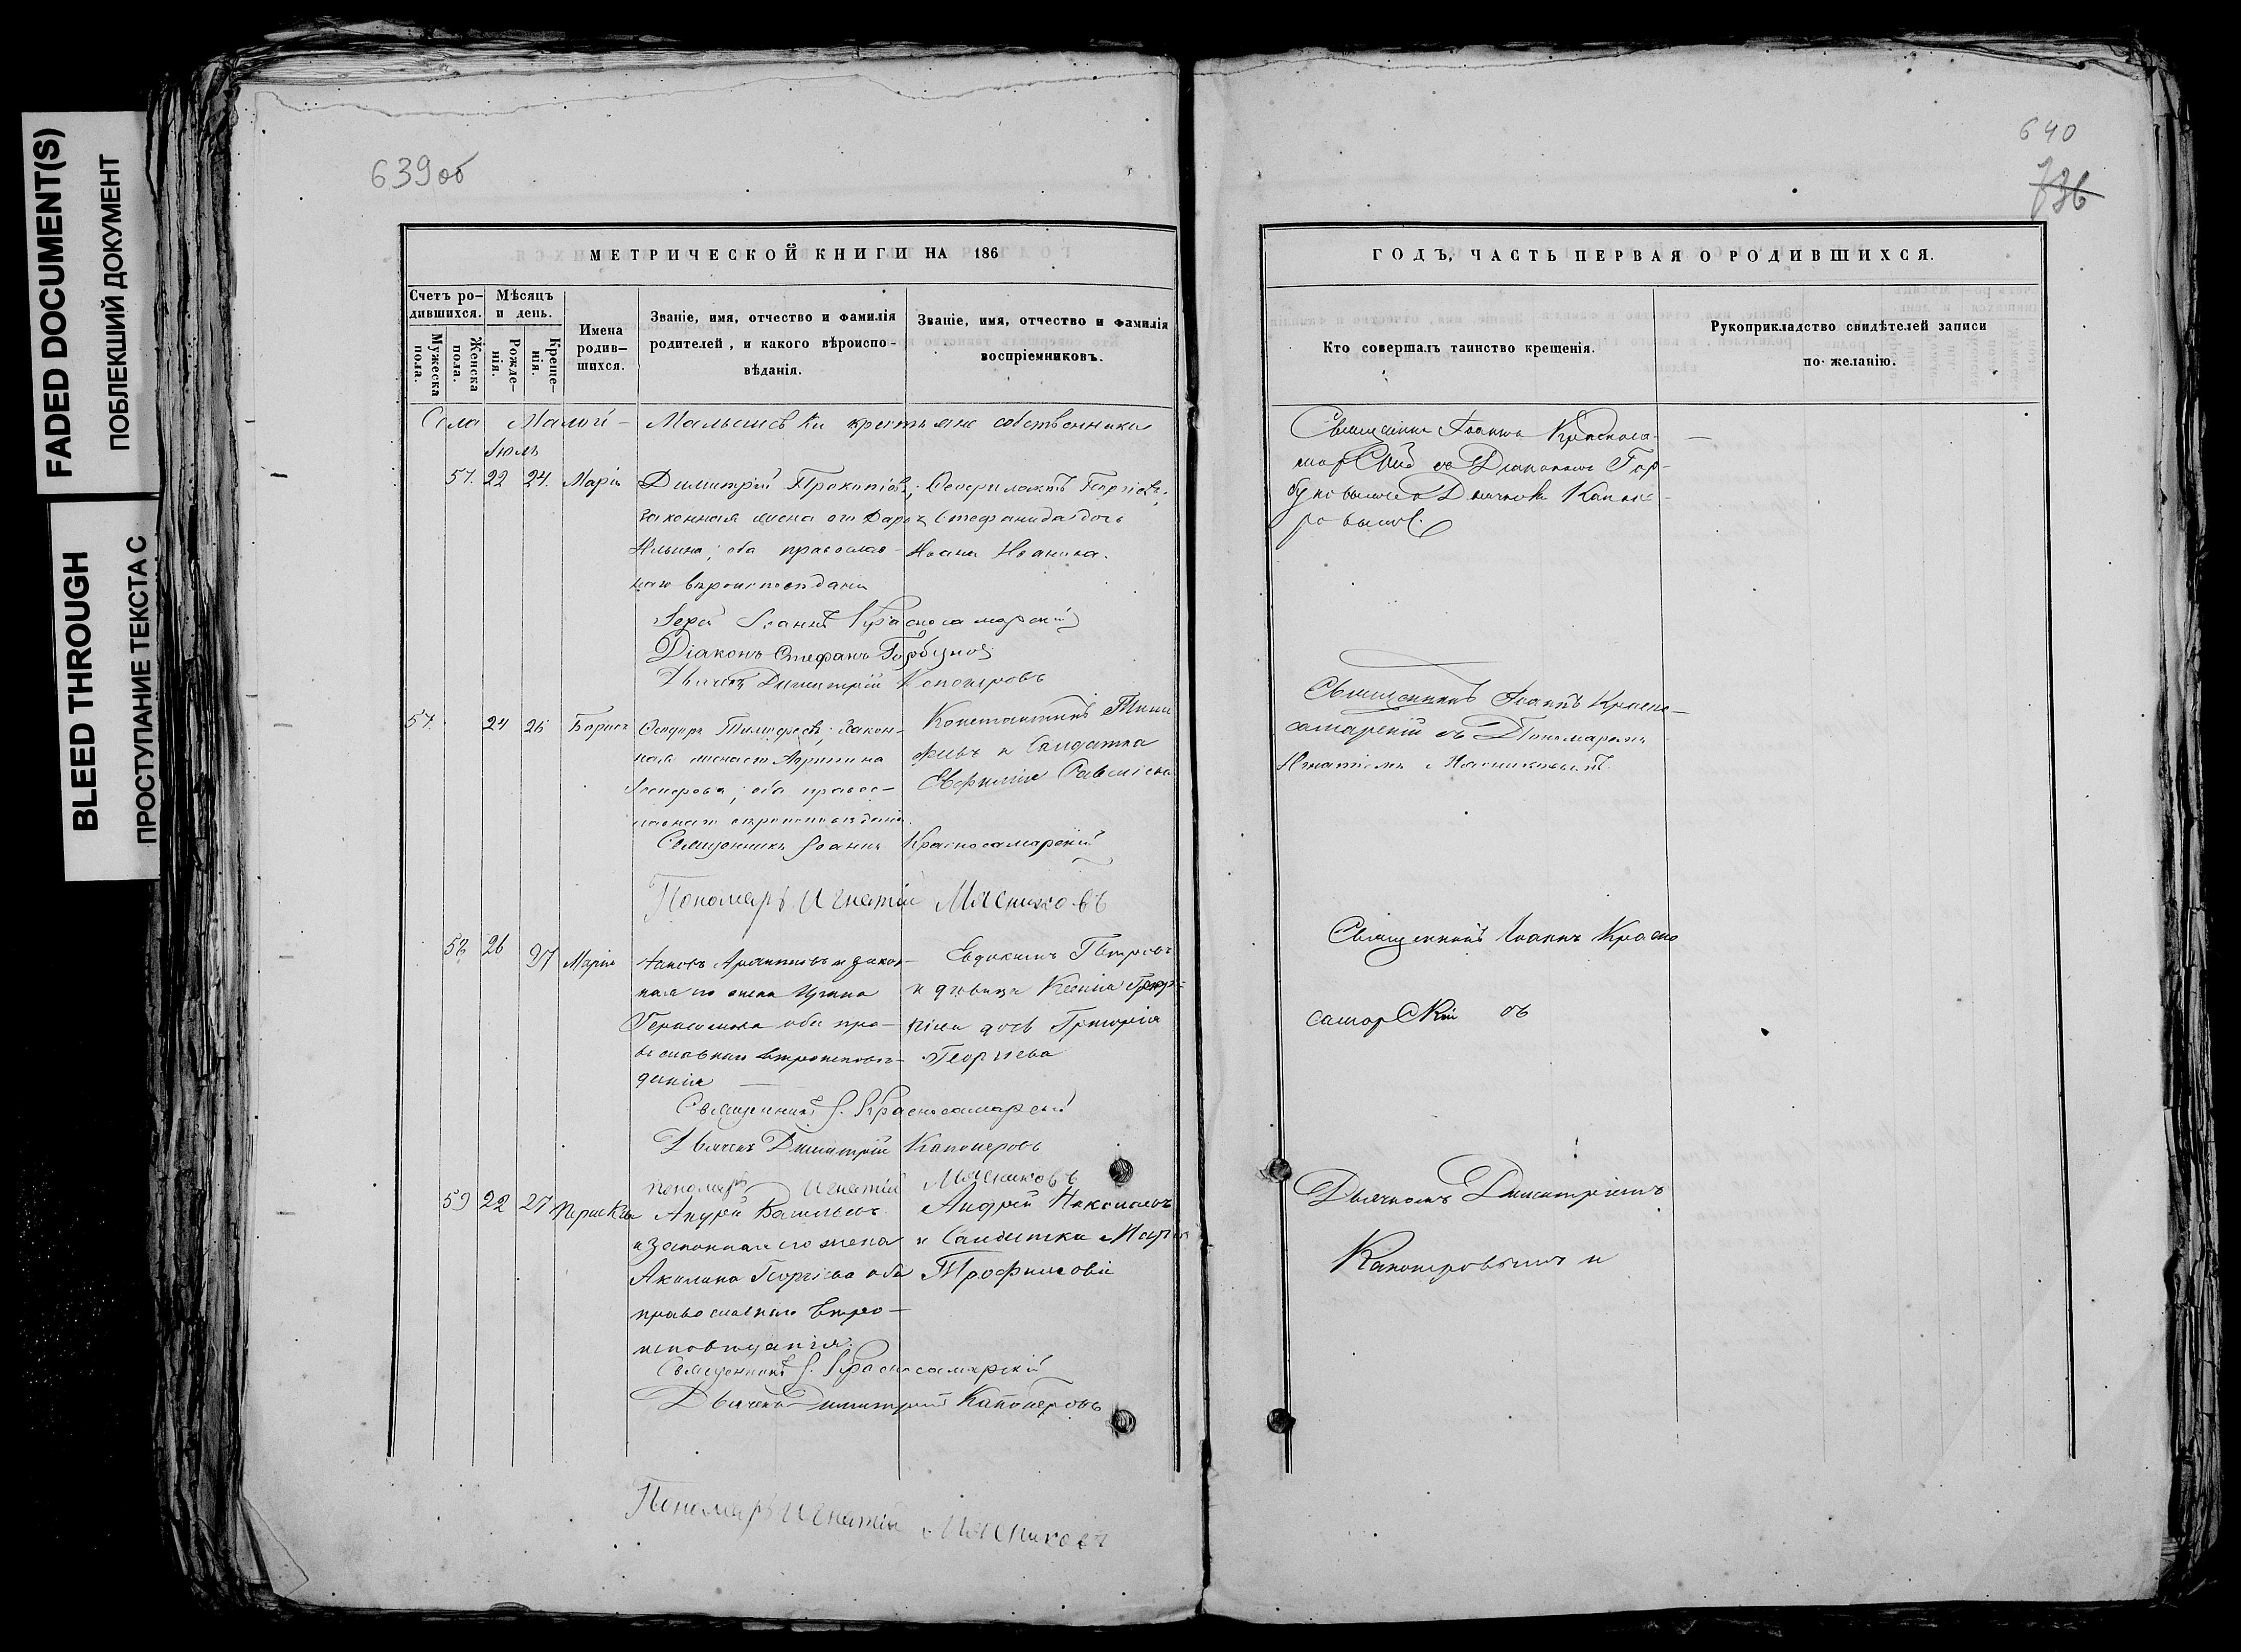 FADED DOCUMENT(S)
ПОБЛЕКШИЙ ДОКУМЕНТ
BLEED THROUGH
ПРОСТУПАНИЕ ТЕКСТА С
639об
МЕТРИЧЕСКОЙ КНИГИ НА 186
Счетъ ро-
дившихся.
Мужеска
пола.
Женска
пола.
Мѣсяцъ
и день.
Рожде-
нія.
Креще-
нія.
Имена
родив-
шихся.
Званіе, имя, отчество и фамилія
родителей, и какого вѣроиспо-
вѣданія.
Званіе, имя, отчество и фамилія
воспріемниковъ.
Села Малой - Малышевки крестьяне собственники
Іюль
57. 22 24. Марія
Димитрій Прокопіевъ;
законная жена его Дарья
Ильина; оба православ-
наго вѣроисповѣданія
Георгіевъ,
Стефанида дочь
Ивана Иванова.
Іерей Іоаннъ Красносамарскій
Діаконъ Стефанъ Горбуновъ
Дьячекъ Димитрій Капонеровъ
57. 24 26 Борисъ
Ѳеодоръ Тимофеевъ; закон-
ная жена его Агрипина
оба правос-
лавнаго вѣроисповѣданія.
Константинъ Тимо
феевъ и Солдатка
Евфимія Савельева
Священникъ Іоаннъ Красносамарскій
Пономарь Игнатій Мясниковъ
58 26 27 Марія
Іаковъ и закон-
ная его жена Ирина
Герасимова оба пра-
вославнаго вѣроисповѣ-
данія
Евдокимъ Петровъ
и девица Ксенія
дочь Григорія
Георгіева
Священникъ І. Красносамарскій
Дьячекъ Димитрій Капонеровъ
пономарь Игнатій Мясниковъ
59 22 27 Параскева
Андрей Васильевъ
и законная его жена
Акилина Георгіева оба
православнаго вѣро-
исповѣданія.
Андрей Николаевъ
и Солдатка Марія
Трофимова
Священникъ І. Красносамарскій
Дьячекъ Димитрій Капонеровъ
Пономарь Игнатій Мясниковъ
640
736
ГОДЪ, ЧАСТЬ ПЕРВАЯ О РОДИВШИХСЯ.
Кто совершалъ таинство крещенія.
Рукоприкладство свидѣтелей записи
по желанію.
Священникъ Іоаннъ Красноса-
марскій съ Діакономъ Гор-
буновымъ и Дьячкомъ Капоне-
ровымъ.
Священникъ Іоаннъ Красно-
самарскій съ Пономаремъ
Игнатіемъ Мясниковымъ.
Священникъ Іоаннъ Красно
самарскій съ
Дьячкомъ Димитріемъ
Капонеровымъ и